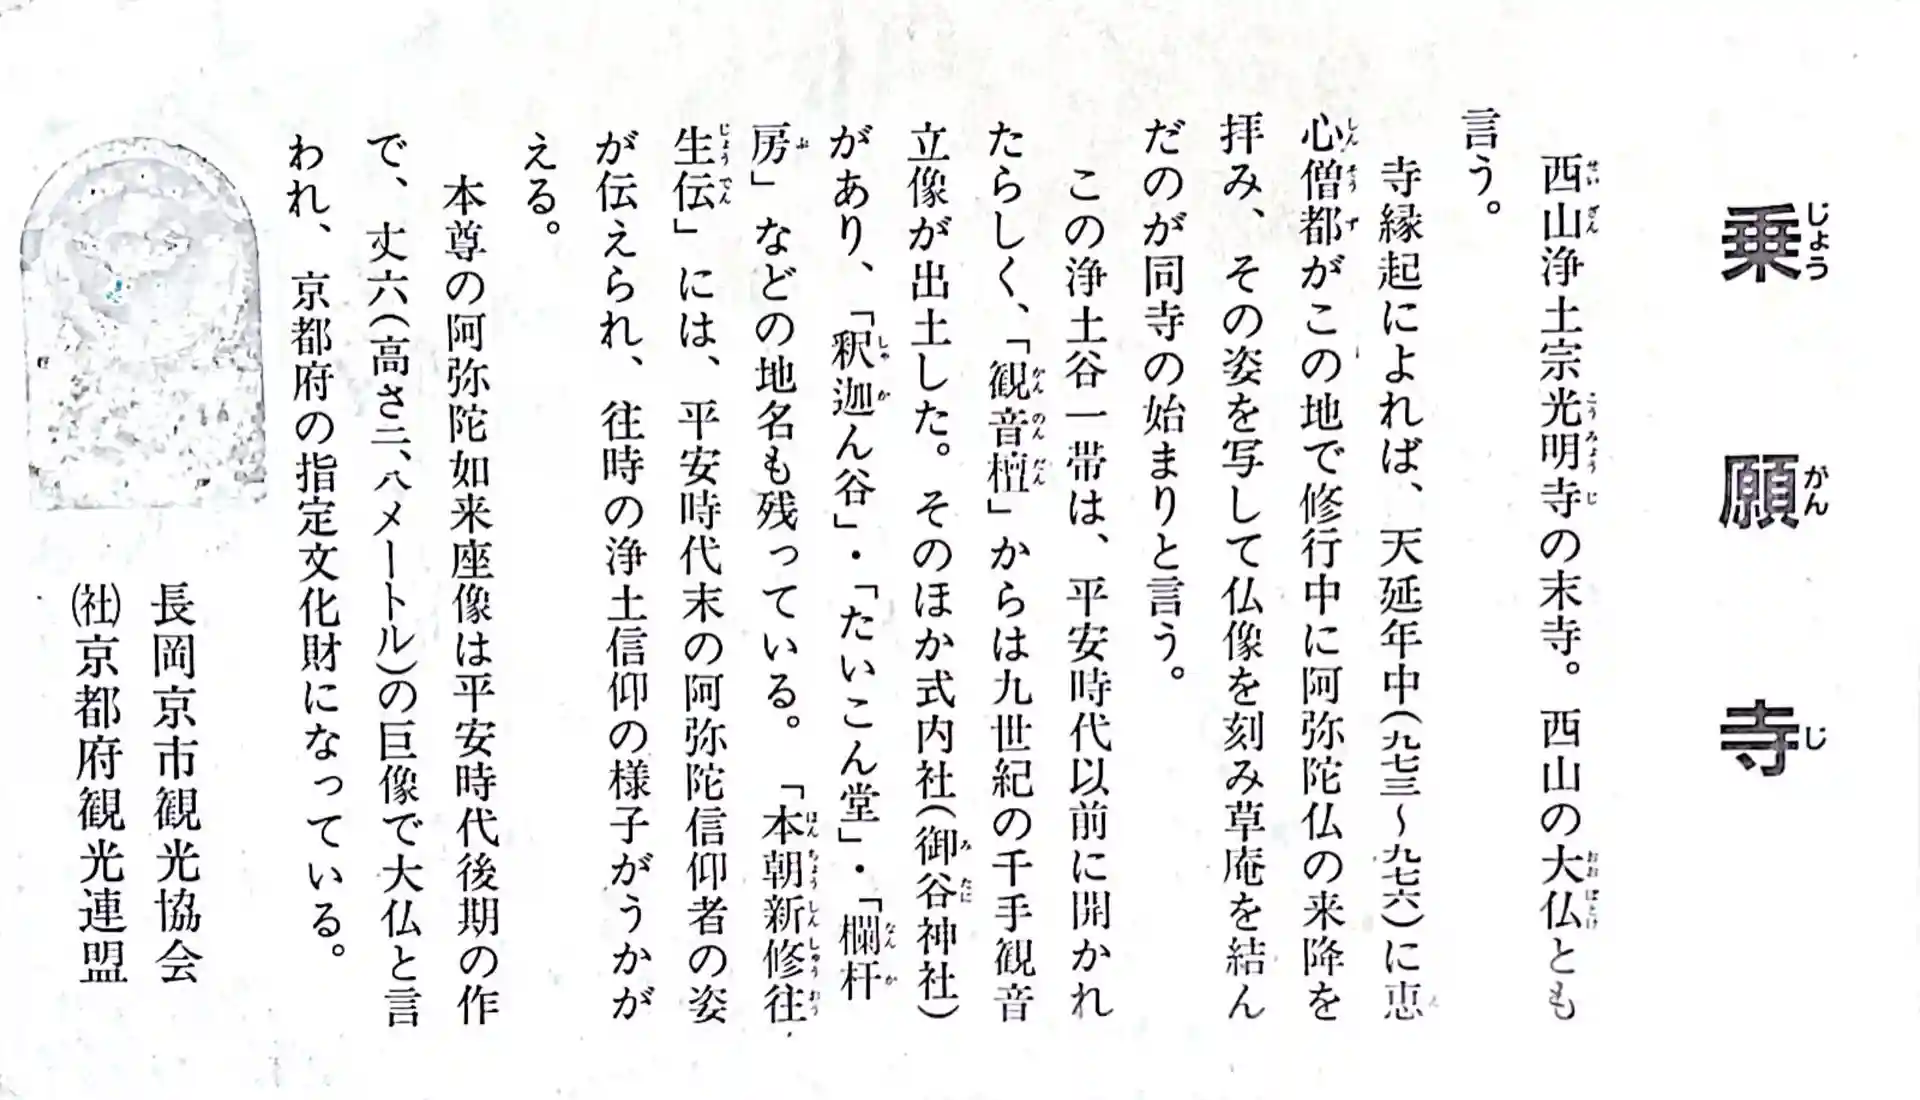 乗願寺
西山浄土宗光明寺の末寺。西山の大仏とも
言う。
寺縁起によれば、天延年中(九七三〜九七六)に恵
心僧都がこの地で修行中に阿弥陀仏の来降を
拝み、その姿を写して仏像を刻み草庵を結ん
だのが同寺の始まりと言う。
この浄土谷一帯は、平安時代以前に開かれ
たらしく、「観音壇」からは九世紀の千手観音
立像が出土した。そのほか式内社(御谷神社)
があり、「釈迦ん谷」・「たいこん堂」・「欄杆
房」などの地名も残っている。「本朝新修往
生伝」には、平安時代末の阿弥陀信仰者の姿
が伝えられ、往時の浄土信仰の様子がうかが
える。
本尊の阿弥陀如来座像は平安時代後期の作
で、丈六(高さ二、八メートル)の巨像で大仏と言
われ、京都府の指定文化財になっている。
長岡京市観光協会
㈳京都府観光連盟